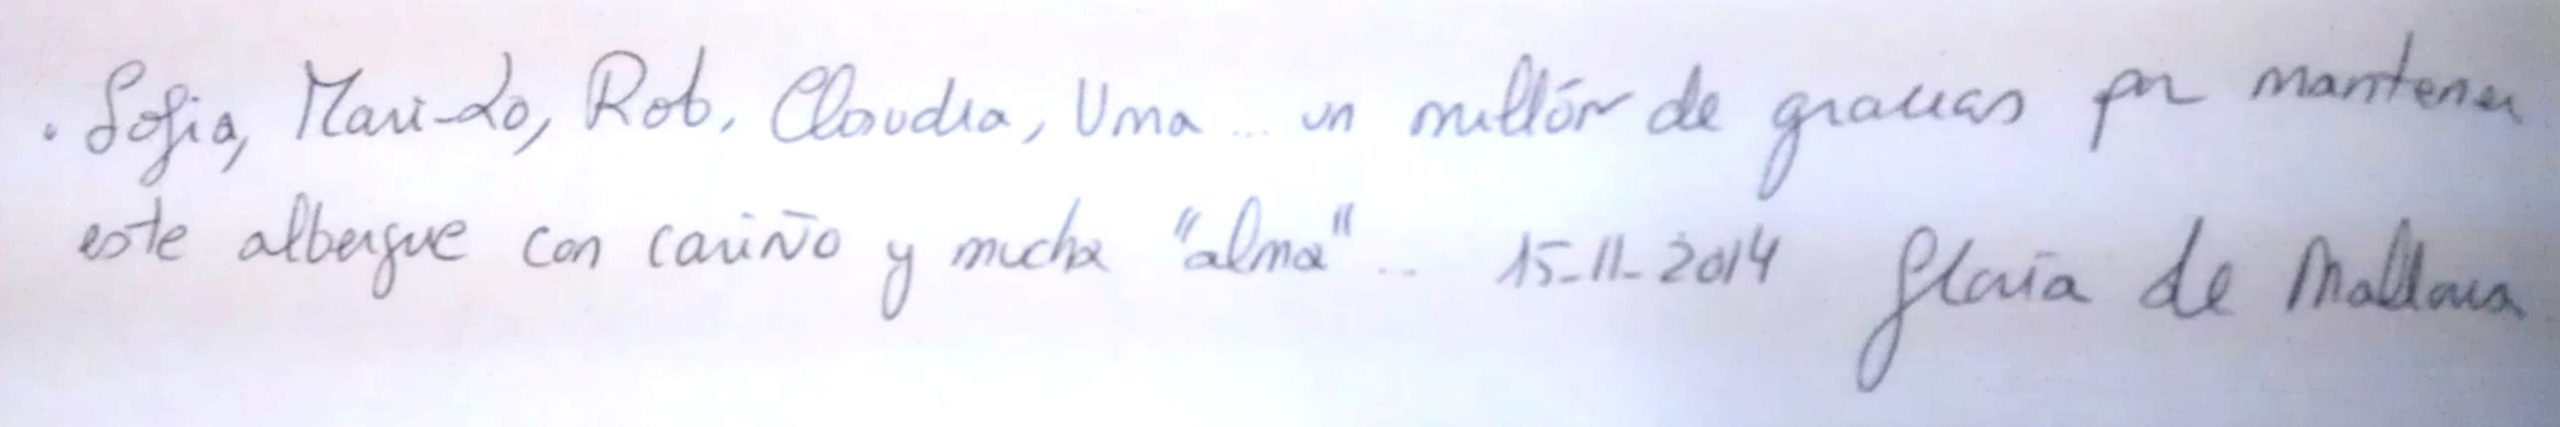 . Sofia, Mari-Lo, Rob, Claudia, Uma ... un millón de gracias por mantener
este albergue con cariño y mucha "alma" .. 15-11-2014 Gloria de Mallorca